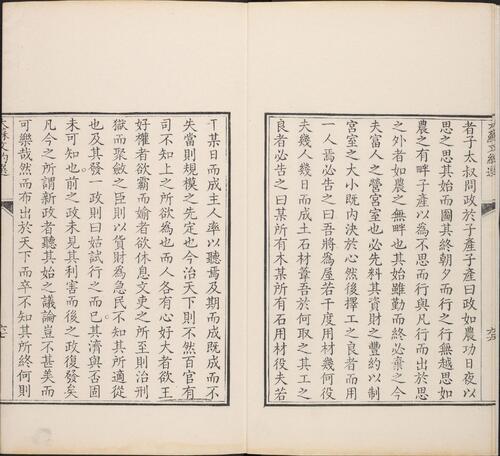 者子太叔問政於子產子產曰政如農功日夜以
思之思其始而圖其終朝夕而行之行無越思如
農之有畔子產以為不思而行與凡行而出於思
之外者如農之無畔也其始雖勤而終必棄之今
夫富人之營宮室也必先料其資財之豐約以制
宮室之大小既內決於心然後擇工之良者而用
一人焉必告之曰吾將為屋若干度用材幾何役
夫幾人幾日而成土石材葦吾於何取之其工之
良者必告之曰某所有木某所有石用材役夫若
干某日而成主人率以聽焉及期而成既成而不
失當則規模之先定也今治天下則不然百官有
司不知上之所欲為也而人各有心好大者欲王
好權者欲霸而媮者欲休息文吏之所至則治刑
獄而聚斂之臣則以貨財為急民不知其所適從
也及其發一政則曰姑試行之而已其濟與否固
未可知也前之政未見其利害而後之政復發矣
凡今之所謂新政者聽其始之議論豈不甚美而
可樂哉然而布出於天下而卒不知其所終何則